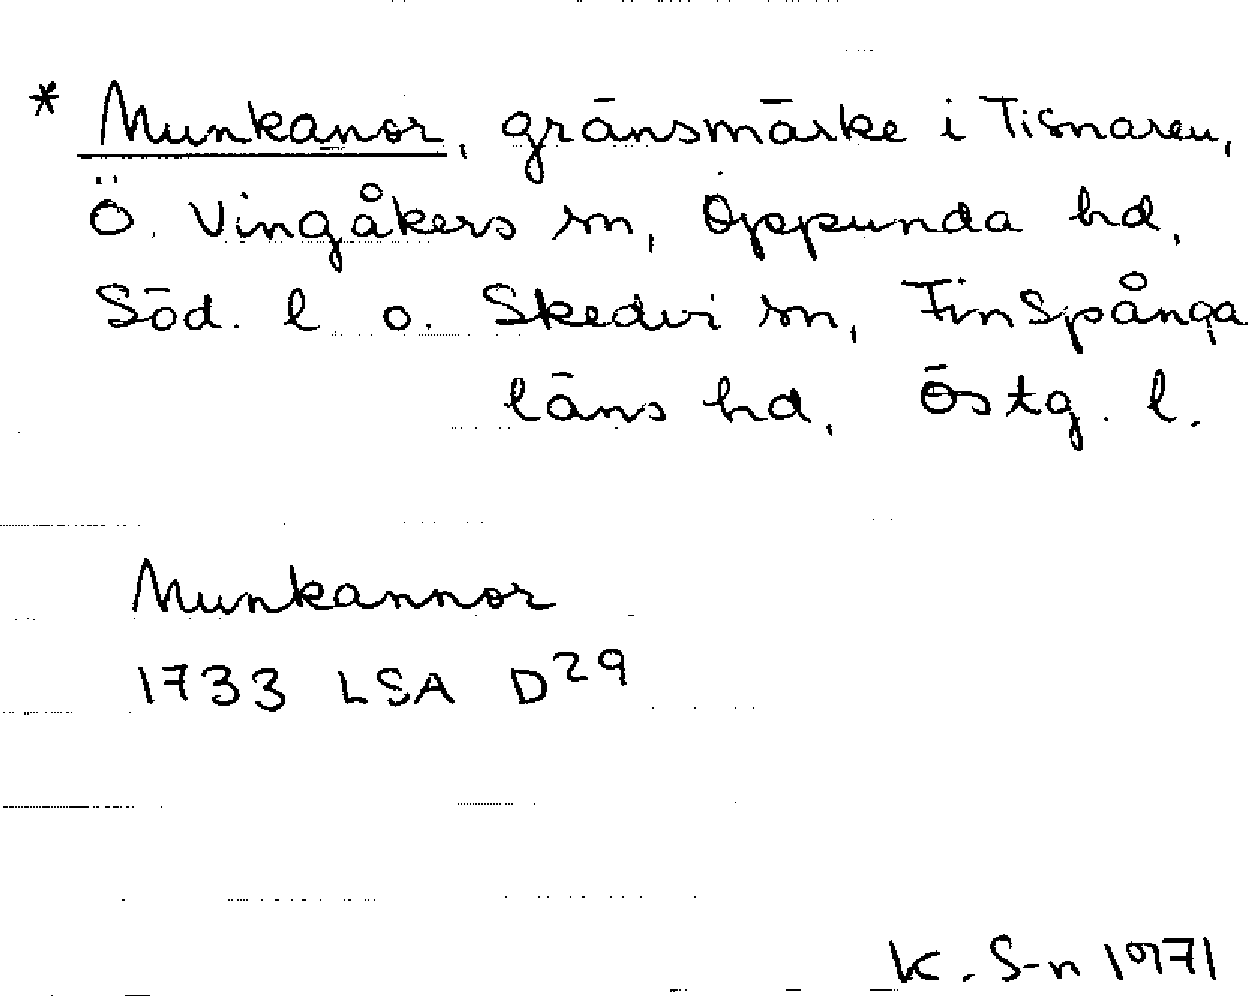 * Munkanor, gränsmärke i Tisnaren,
Ö. Vingåkers sn, Oppunda hd,
Söd. l o. Skedvi sn, Finspånga
läns hd, Östg. l.
Munkannor
1733 LSA D29
K. S-n 1971